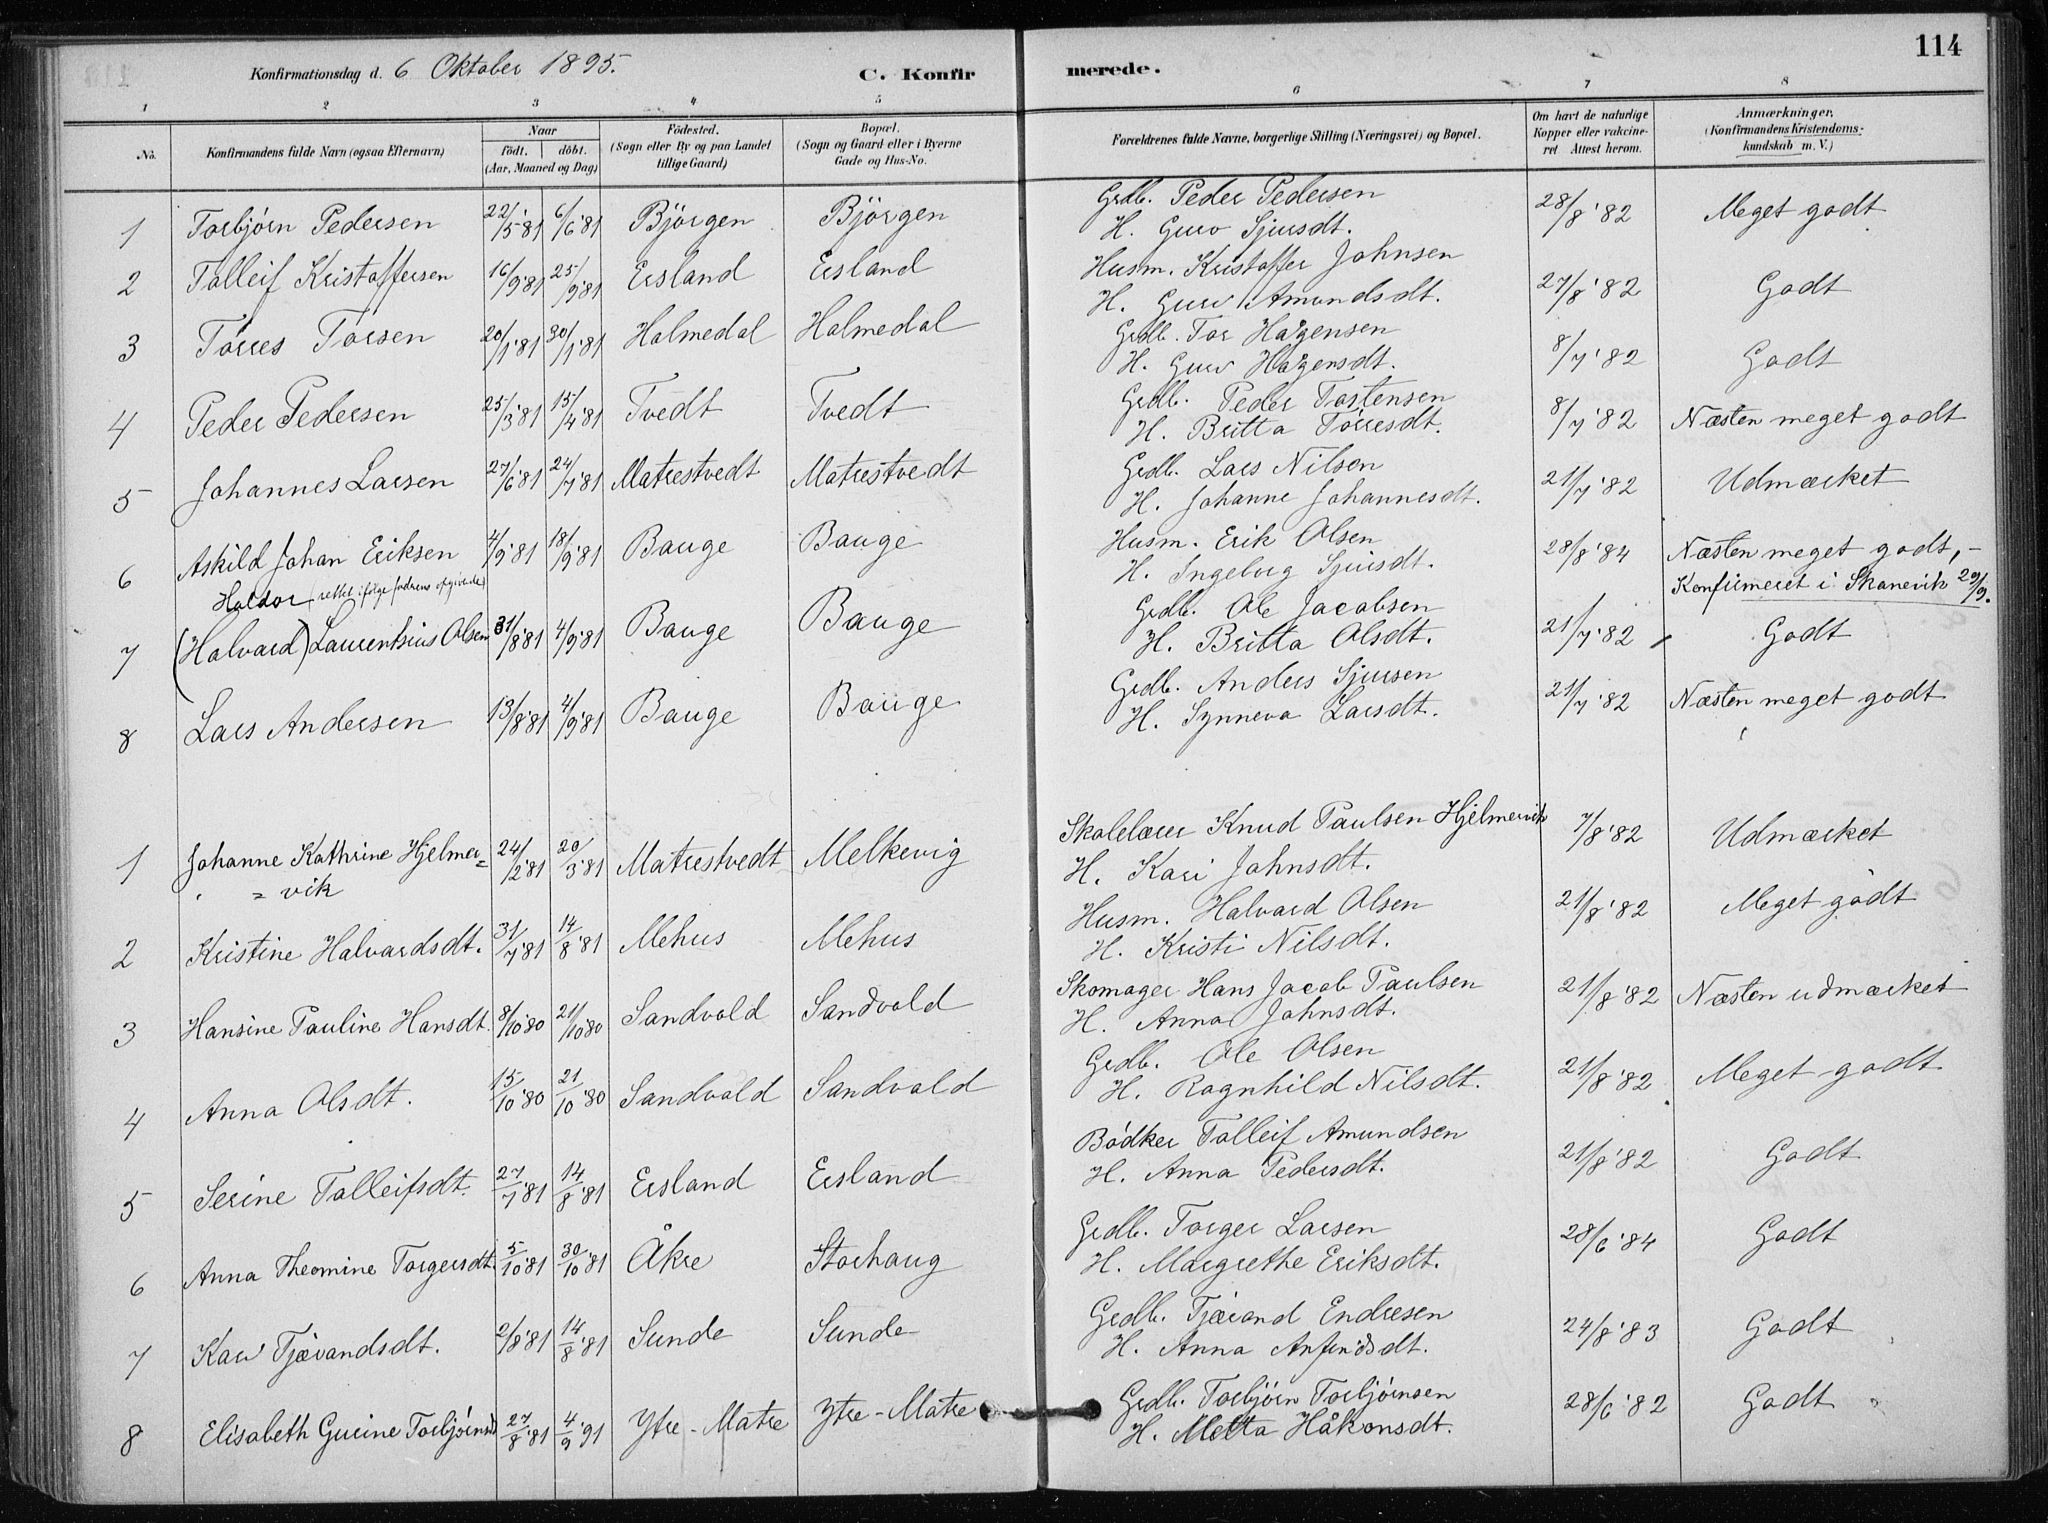 114
Konfirmationsdag d. 6 Oktober 1895.
C. Konfirmerede.
1 2 3 4 5 6 7 8
No. | Konfirmandens fulde Navn (ogsaa Efternavn) | Naar Födt. döbt. (Aar, Maaned og Dag) | Födested. (Sogn eller By og paa Landet tillige Gaard) | Bopæl. (Sogn og Gaard eller i Byerne Gade og Hus-No. | Forældrenes fulde Navne, borgerlige Stilling (Næringsvei) og Bopæl. | Om havt de naturlige Kopper eller vakcineret Attest herom. | Anmærkninger, (Konfirmandens Kristendomskundskab m. V.)
1 Torbjørn Pedersen 22/5'81 6/6'81 Bjørgen Bjørgen Grdb. Peder Pedersen 28/8'82 Meget godt
H. Guro Sjursdt.
2 Tolleif Kristoffersen 16/9'81 25/9'81 Ersland Ersland Husm. Kristoffer Johnsen 27/8'82 Godt
H. Guro Amundsdt.
3 Tørres Torsen 20/1'81 30/1'81 Halmedal Halmedal Grdb. Tor Hagensen 8/7'82 Godt
H. Guro Hagensdt.
4 Peder Pedersen 25/3'81 15/4'81 Tvedt Tvedt Grdb. Peder Tostensen 8/7'82 Næsten meget godt
H. Britta Tørresdt.
5 Johannes Larsen 27/6'81 24/7'81 Matrestvedt Matrestvedt Grdb. Lars Nilsen 21/7'82 Udmærket
H. Johanne Johannesdt.
6 Askild Johan Eriksen 4/9'81 18/9'81 Bauge Bauge Husm. Erik Olsen 28/8'84 Næsten meget godt,-
H. Ingeborg Sjursdt. Konfirmeret i Skanevik 29/9.
Haldor (rettet ifølge faderens opgivende)
7 (Halvard) Laurentsius Olsen 31/8'81 4/9'81 Bauge Bauge Grdb. Ole Jacobsen 21/7'82 Godt
H. Britta Olsdt.
8 Lars Andersen 13/8'81 4/9'81 Bauge Bauge Grdb. Anders Sjursen 21/7'82 Næsten meget godt
H. Synneva Larsdt.
1 Johanne Kathrine Hjelmer= 24/2'81 20/3'81 Matrestvedt Melkevig Skolelærer Knud Paulsen Hjelmervik 7/8'82 Udmærket
= vik H. Kari Johnsdt.
2 Kristine Halvardsdt. 31/7'81 14/8'81 Mehus Mehus Husm. Halvard Olsen 21/8'82 Meget godt
H. Kristi Nilsdt.
3 Hansine Pauline Hansdt. 8/10'80 21/10'80 Sandvold Sandvold Skomager Hans Jacob Paulsen 21/8'82 Næsten udmærket
H. Anna Johnsdt.
4 Anna Olsdt. 15/10'80 21/10'80 Sandvold Sandvold Grdb. Ole Olsen 21/8'82 Meget godt
H. Ragnhild Nilsdt.
5 Serine Tolleifsdt. 27/7'81 14/8'81 Ersland Ersland Bødker Tolleif Amundsen 21/8'82 Godt
H. Anna Pedersdt.
6 Anna Theomine Torgersdt. 5/10'81 30/10'81 Åkre Storhaug Grdb. Torger Larsen 28/6'84 Godt
H. Margrethe Eriksdt.
7 Kari Tjærandsdt. 2/8'81 14/8'81 Sunde Sunde Grdb. Tjærand Endresen 24/8'83 Godt
H. Anna Anfindsdt.
8 Elisabeth Gurine Torbjørnsd 27/8'81 4/9'91 Ytre-Matre Ytre-Matre Grdb. Torbjørn Torbjørnsen 28/6'82 Godt
H. Metta Håkonsdt.